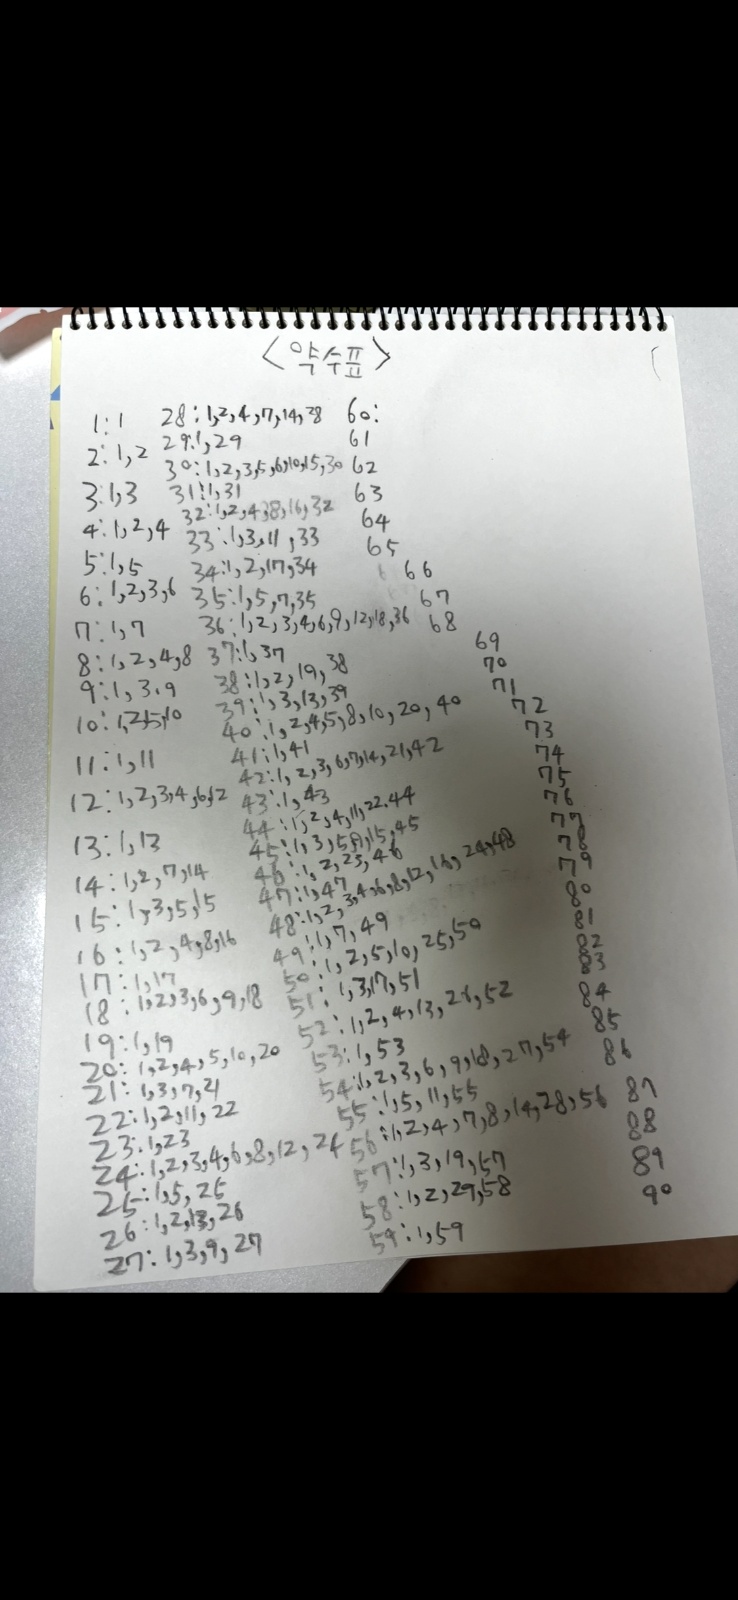 <약수표>
1:1
2:1,2
3:1,3
4:1,2,4
5:1,5
6:1,2,3,6
7:1,7
8:1,2,4,8
9:1,3,9
10:1,2,5,10
11:1,11
12:1,2,3,4,6,12
13:1,13
14:1,2,7,14
15:1,3,5,15
16:1,2,4,8,16
17:1,17
18:1,2,3,6,9,18
19:1,19
20:1,2,4,5,10,20
21:1,3,7,21
22:1,2,11,22
23:1,23
24:1,2,3,4,6,8,12,24
25:1,5,25
26:1,2,13,26
27:1,3,9,27
28:1,2,4,7,14,28
29:1,29
30:1,2,3,5,6,10,15,30
31:1,31
32:1,2,4,8,16,32
33:1,3,11,33
34:1,2,17,34
35:1,5,7,35
36:1,2,3,4,6,9,12,18,36
37:1,37
38:1,2,19,38
39:1,3,13,39
40:1,2,4,5,8,10,20,40
41:1,41
42:1,2,3,6,7,14,21,42
43:1,43
44:1,2,4,11,22,44
45:1,3,5,9,15,45
46:1,2,23,46
47:1,47
48:1,2,3,4,6,8,12,16,24,48
49:1,7,49
50:1,2,5,10,25,50
51:1,3,17,51
52:1,2,4,13,26,52
53:1,53
54:1,2,3,6,9,18,27,54
55:1,5,11,55
56:1,2,4,7,8,14,28,56
57:1,3,19,57
58:1,2,29,58
59:1,59
60:
61
62
63
64
65
66
67
68
69
70
71
72
73
74
75
76
77
78
79
80
81
82
83
84
85
86
87
88
89
90